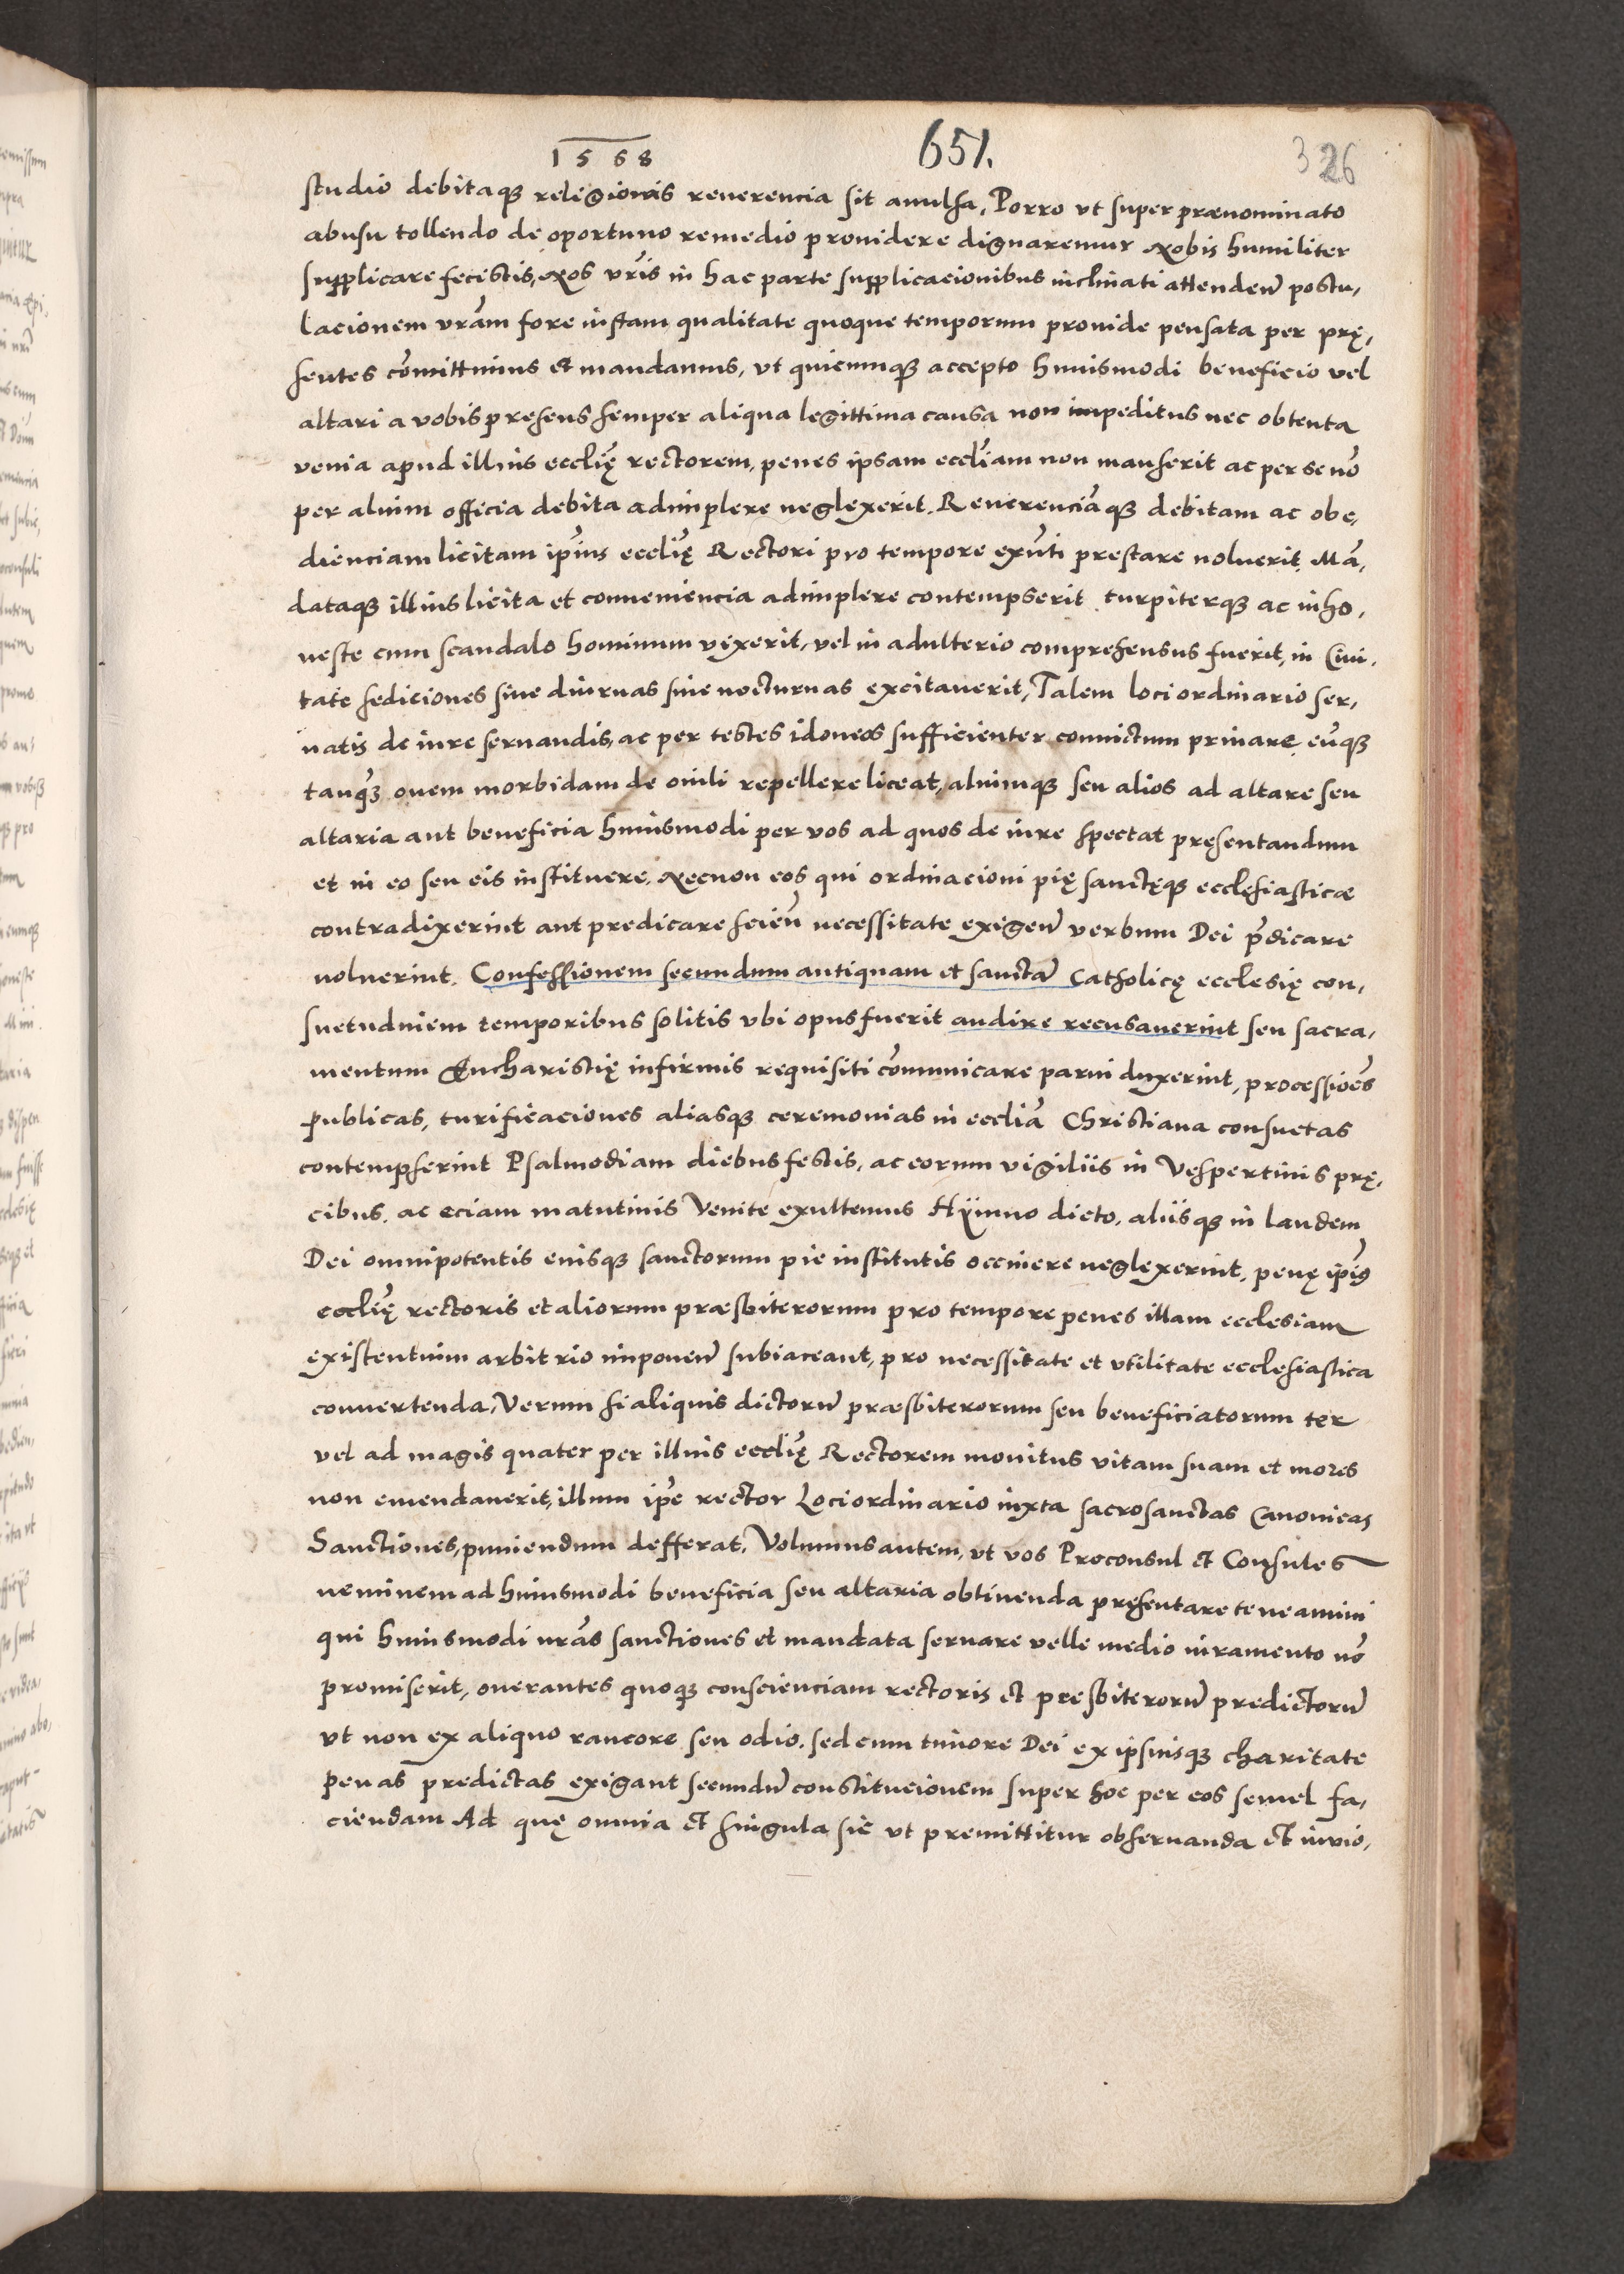 1568
651.
326
studio debitaqꝫ religionis reuerencia sit auulsa, Porro vt super prænominato
abusu tollendo de oportuno remedio prouidere dignaremur Nobis humiliter
supplicare fecistis, Nos vr̃is in hac parte supplicacionibus inclinati attendeñ postu,
lacionem vrãm fore iustam qualitate quoque temporum prouide pensata per prę,
sentes cõmittimus et mandamus, vt quicumqꝫ accepto huiusmodi beneficio vel
altari a vobis presens semper aliqua legittima causa non impeditus nec obtenta
venia apud illius eccl̃ię rectorem, penes ipsam eccl̃iam non manserit ac per se uõ
per alium officia debita adimplere neglexerit. Reuerenciãqꝫ debitam ac obe,
dienciam licitam ip̃ius eccl̃ię Rectori pro tempore exñti prestare noluerit, Mã,
dataqꝫ illius licita et conueniencia adimplere contempserit turpiterqꝫ ac inho,
neste cum scandalo hominum vixerit, vel in adulterio comprehensus fuerit, in Ciui,
tate sediciones siue diurnas siue nocturnas excitauerit, Talem loci ordinario ser,
uatis de iure seruandis, ac per testes idoneos sufficienter conuictum priuare, eũqꝫ
tanqꝫ ouem morbidam de ouili repellere liceat, aliumqꝫ seu alios ad altare seu
altaria aut beneficia huiusmodi per vos ad quos de iure spectat pręsentandum
et in eo seu eis instituere. Necnon eos qui ordinacioni pię sanctęqꝫ ecclesiasticæ
contradixerint aut predicare scieñ necessitate exigeñ verbum Dei p̃dicare
noluerint. Confessionem secundum antiquam et sanctã Catholicę ecclesię con,
suetudinem temporibus solitis vbi opus fuerit audire recusauerint seu sacra,
mentum Eucharistię infirmis requisiti cõmunicare parui duxerint, processiões
publicas, turificaciones aliasqꝫ ceremonias in eccl̃iã Christiana consuetas
contempserint Psalmodiam diebus festis, ac eorum vigiliis in Vespertinis prę,
cibus, ac eciam matutinis Venite exultemus Hÿmno dicto, aliisqꝫ in laudem
Dei omnipotentis eiusqꝫ sanctorum pie institutis occinere neglexerint, penę ip̃ius
eccl̃ię rectoris et aliorum præsbiterorum pro tempore penes illam ecclesiam
existentium arbitrio imponeñ subiaceant, pro necessitate et vtilitate ecclesiastica
conuertenda, Verum si aliquis dictorũ præsbiterorum seu beneficiatorum ter
vel ad magis quater per illius eccl̃ię Rectorem monitus vitam suam et mores
non emendauerit, illum ip̃e rector Loci ordinario iuxta sacrosanctas Canonicas
Sanctiones, puniendum defferat, Volumus autem, vt vos Proconsul et Consules
neminem ad huiusmodi beneficia seu altaria obtinenda pręsentare teneamini
qui huiusmodi nrãs sanctiones et mandata seruare velle medio iuramento nõ
promiserit, onerantes quoqꝫ conscienciam rectoris et presbiterorũ predictorũ
vt non ex aliquo rancore seu odio, sed cum timore Dei ex ipsiusqꝫ charitate
penas predictas exigant secundũ constitucionem super hoc per eos semel fa,
ciendam Ad quę omnia et singula sic vt premittitur obseruanda et inuio,